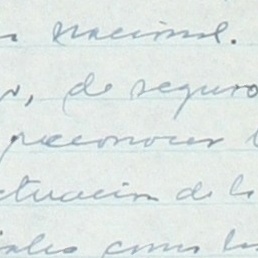 nacional.
, de seguro
reconocer
ctuación de l
iales como l